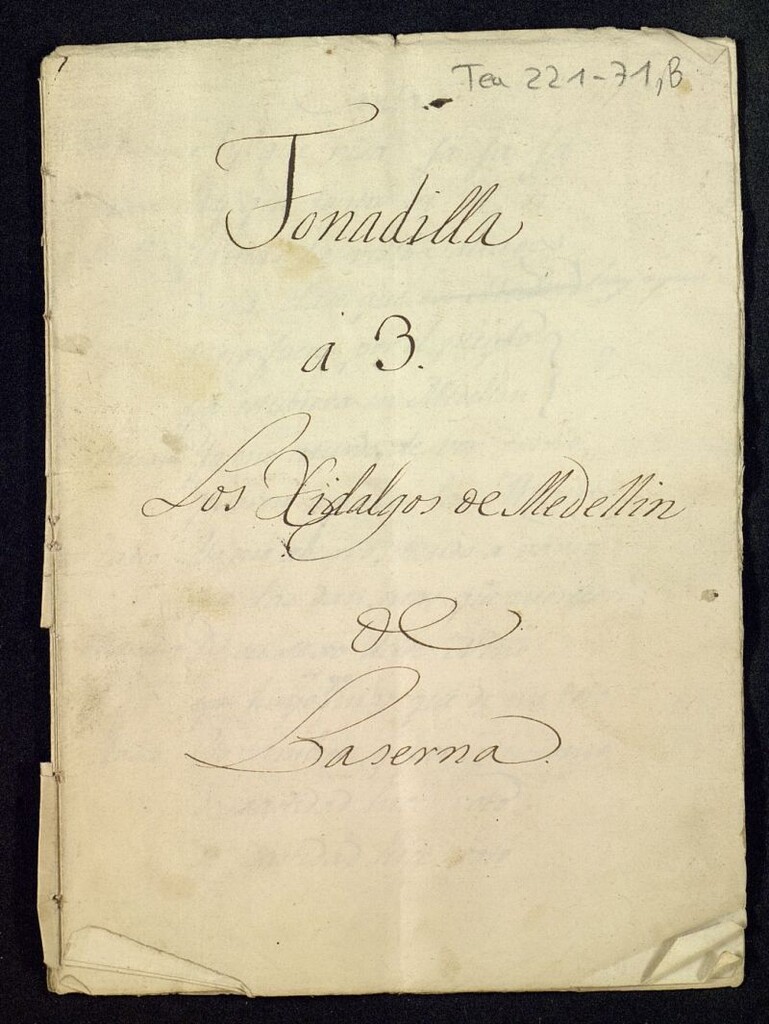 Tea 221-71, B
Tonadilla
a 3.
Los Hidalgos de Medellin
de
Laserna.